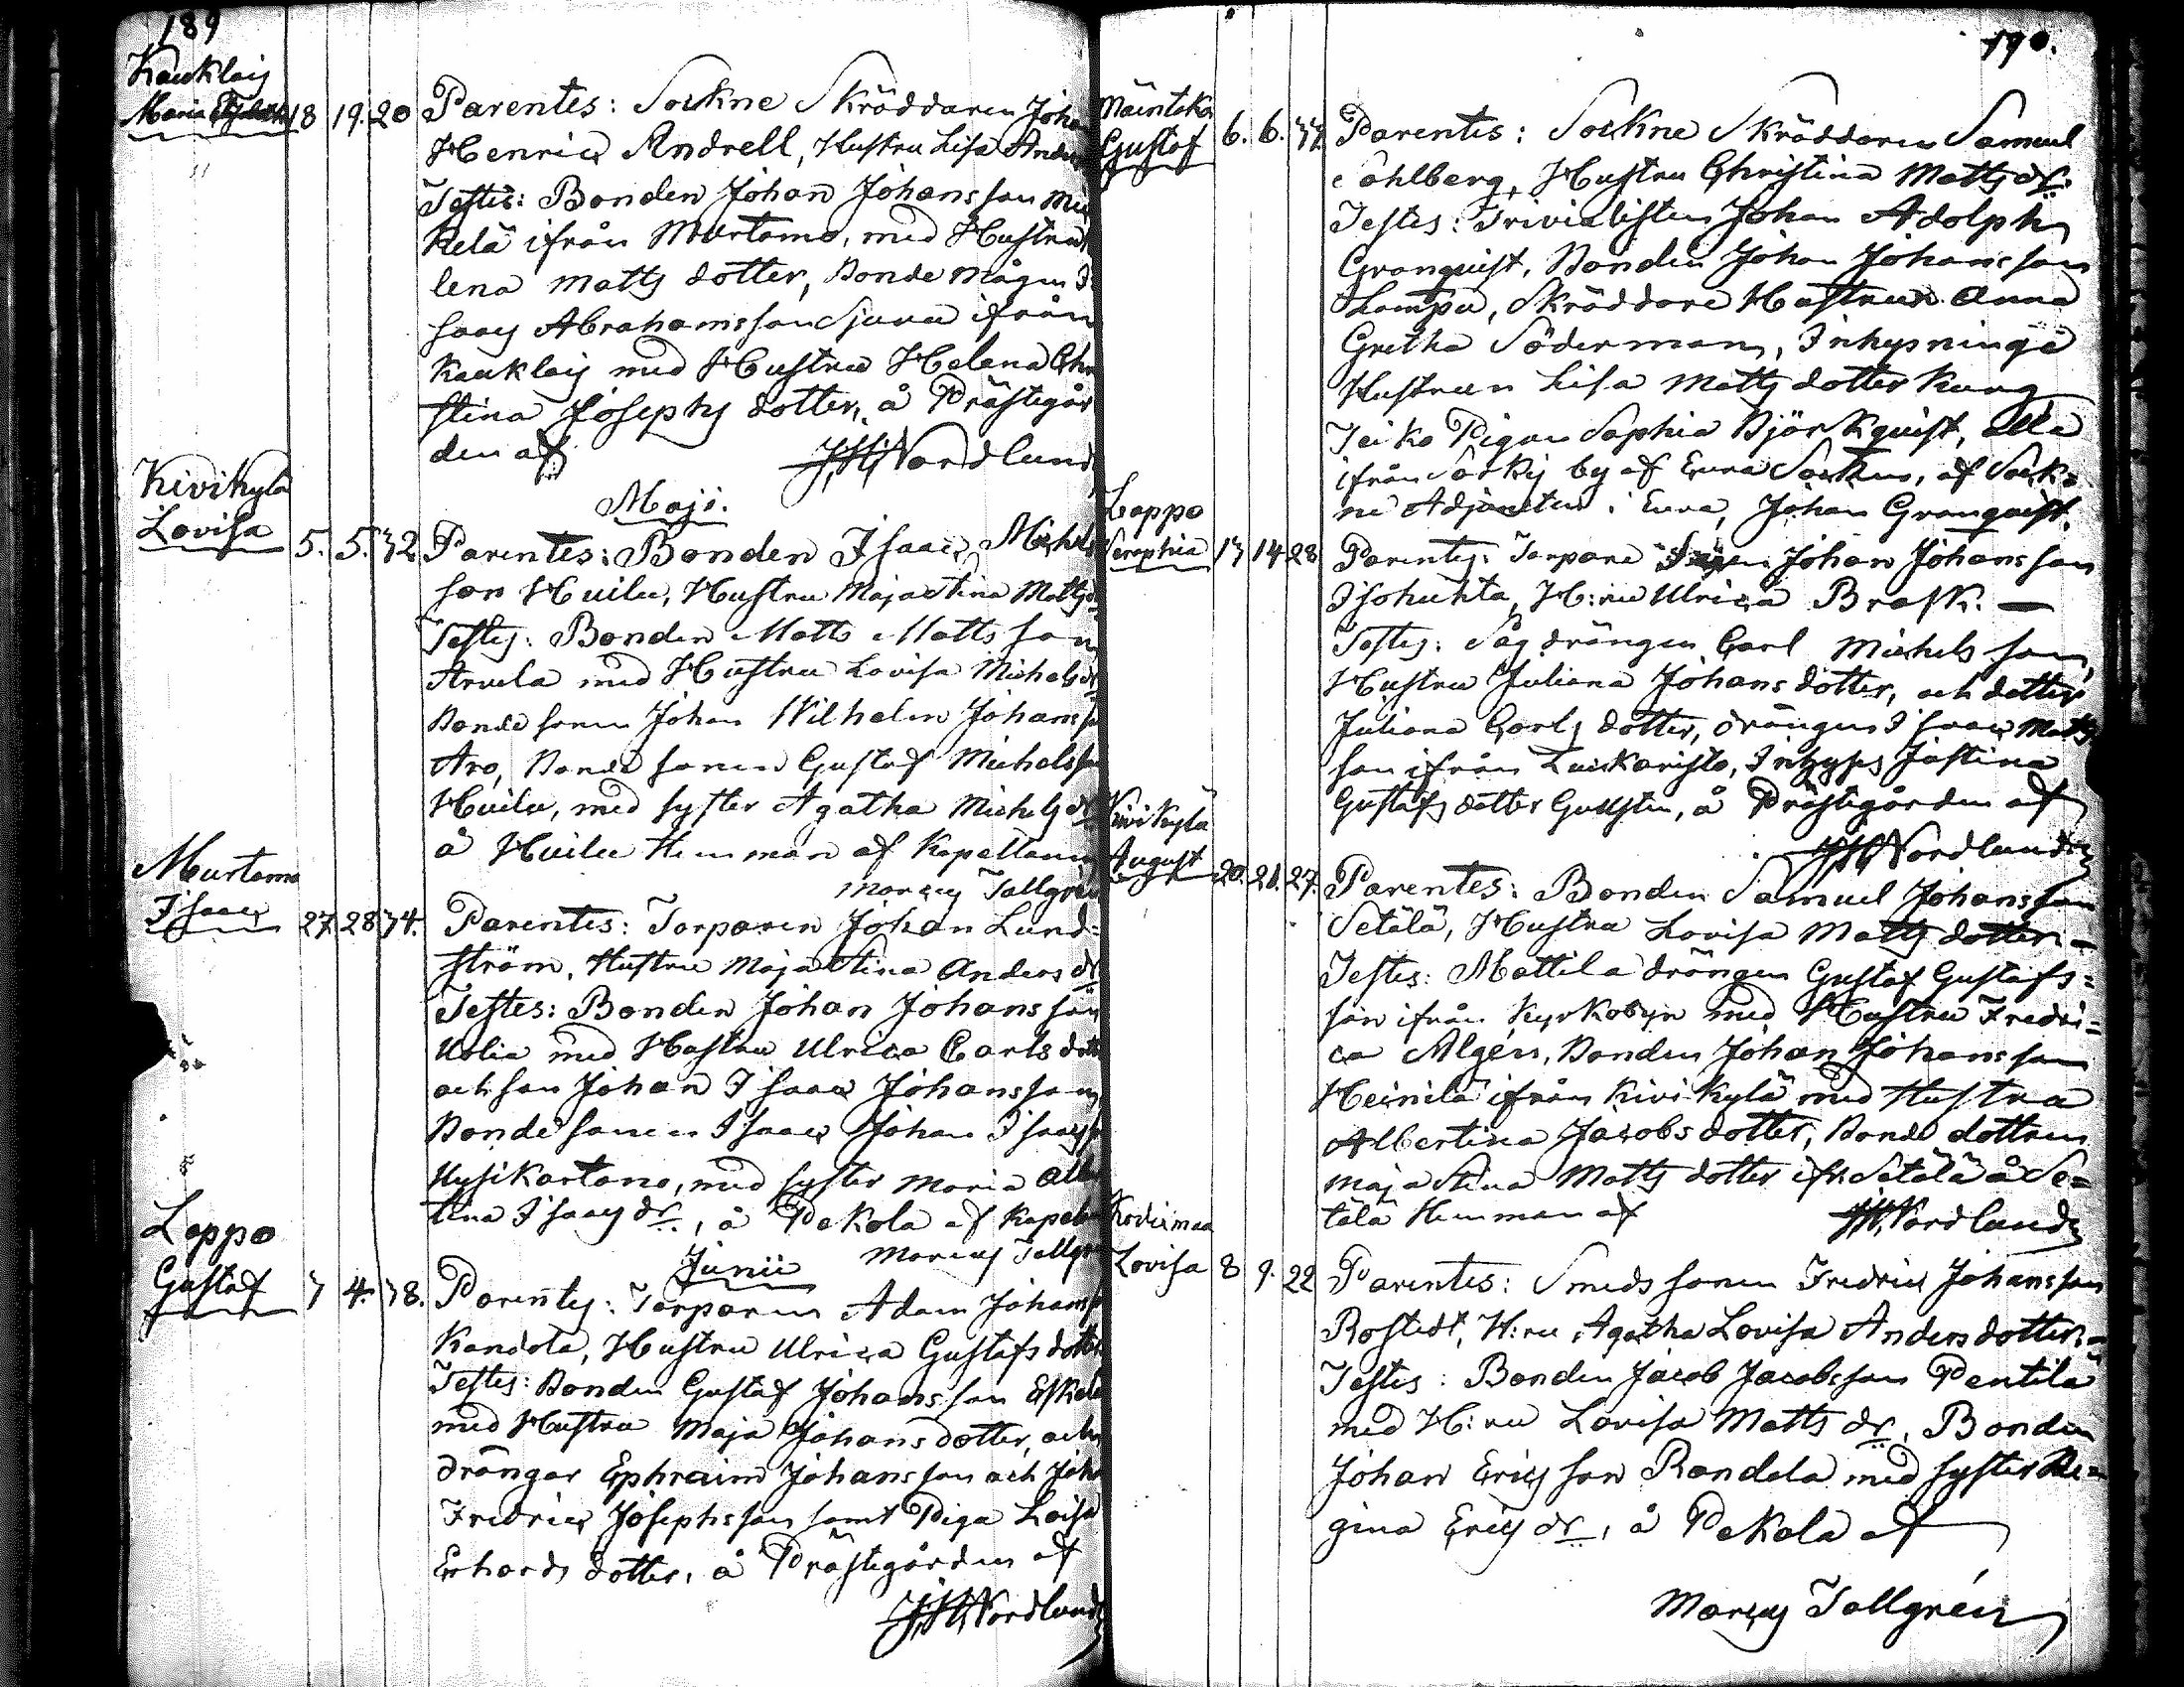 189
Kauklais
Maria
18 19. 20 Parentes: Sockne Skräddaren Joha
Henric Andrell, Hustru Lisa Anders
Testes: Bonden Johan Johansson Mic
kelä ifrån Murtamo, med Hustru
lena Matts dotter, Bonde Mågen I
saac Abrahamsson Sjuru ifrån
Kauklais med Hustru Helena Chri
stina Josephs dotter, å Prästegår
den af JH Nordlund
Maji.
Kivikylä
Lovisa 5. 5. 32 Parentes: Bonden Isaac Michels
son Huilu, Hustru Maja Stina Mattsd
Testes: Bonden Matts Mattsson
Arvela med Hustru Lovisa Michels dr
Bonde sonen Johan Wilhelm Johanss
Aro, Bonde sonen Gustaf Michelsson
Huilu, med syster Agatha Michels dr
å Huilu Hemman af Kapellanen
Marcus Tallgrén
Murtamo
Isaac 27. 28 34. Parentes: Torparen Johan Lund=
ström, Hustru Maja Stina Anders dr
Testes: Bonden Johan Johansson
Uolia med Hustru Ulrica Carls dott
och son Johan Isaac Johansson
Bonde sonen Isaac Johan Isaacss
Uusikartano, med syster Maria Alber
tina Isaacs dr, å Pekola af Kapella
Marcus Tallgr
Junii
Lappo
Gustaf 3 4. 38. Parentes: Torparen Adam Johanss
Kandola, Hustru Ulrica Gustafs dotte
Testes: Bonden Gustaf Johansson Eskola
med Hustru Maja Johans dotter, och
drängar Ephraim Johansson och Joha
Fredric Josephsson samt Piga Lovisa
Erhards dotter, å Prästegården af
JH Nordlund
190.
Mäntika
Gustaf 6. 6. 37. Parentes: Sockne Skräddaren Samuel
Sahlberg, Hustru Christina Matts dr.
Testes: Trivialisten Johan Adolph
Granquist, Bonden Johan Johansson
Lampu, Skräddare Hustrun Anna
Gretha Söderman, Inhysninge
Hustrun Lisa Matts dotter Kung
Pigan Sophia Björkquist, alla
ifrån Sorkis by af Eura Sockn, af Sock=
ne Adjuncten i Eura, Johan Granquist.
Lappo
Serophia 13 14 28 Parentes: Torpare Johan Johansson
Isohuhta, H:ru Ulrica Brask. —
Testes: Såg drängen Carl Michelsson,
Hustru Juliana Johans dotter, och dotter
Juliana Carls dotter, drängen Isaac Matts
son ifrån Luikaristo, Inhyses Justina
Gustafs dotter, å Prästegården af
JH Nordlund
Kivikylä
August 20. 21. 27. Parentes: Bonden Samuel Johansson
Setälä, Hustru Lovisa Matts dotter —
Testes: Mattila drängen Gustaf Gustafs=
son ifrån Kyrkobyn med Hustru Fredri=
ca Algén, Bonden Johan Johansson
Heinilä ifrån Kivikylä med Hustru
Albertina Jacobs dotter, Bonde dottren
Maja Stina Matts dotter ifr. Setälä å Se=
tälä Hemman af JH Nordlund
Kodisimaa
Lovisa 8 9. 22 Parentes: Smeds sonen Fredric Johansson
Rostedt, H:ru Agatha Lovisa Anders dotter. —
Testes: Bonden Jacob Jacobsson Pentilä
med H:ru Lovisa Matts dr, Bonden
Johan Ericsson Randala med syster Re=
gina Erics dr, å Pekola af
Marcus Tallgrén